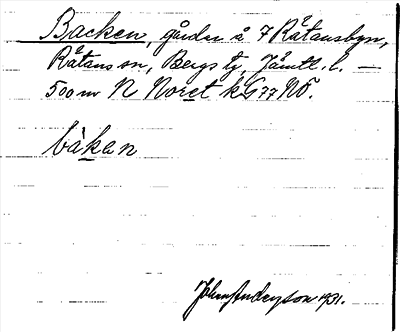 Backen, gården å 7 Råtansbyn,
Råtans sn, Bergs tg, Jämtl. l. —
500 m N Noret kG 77 NÖ.
bàkan
John Anderson 1931.